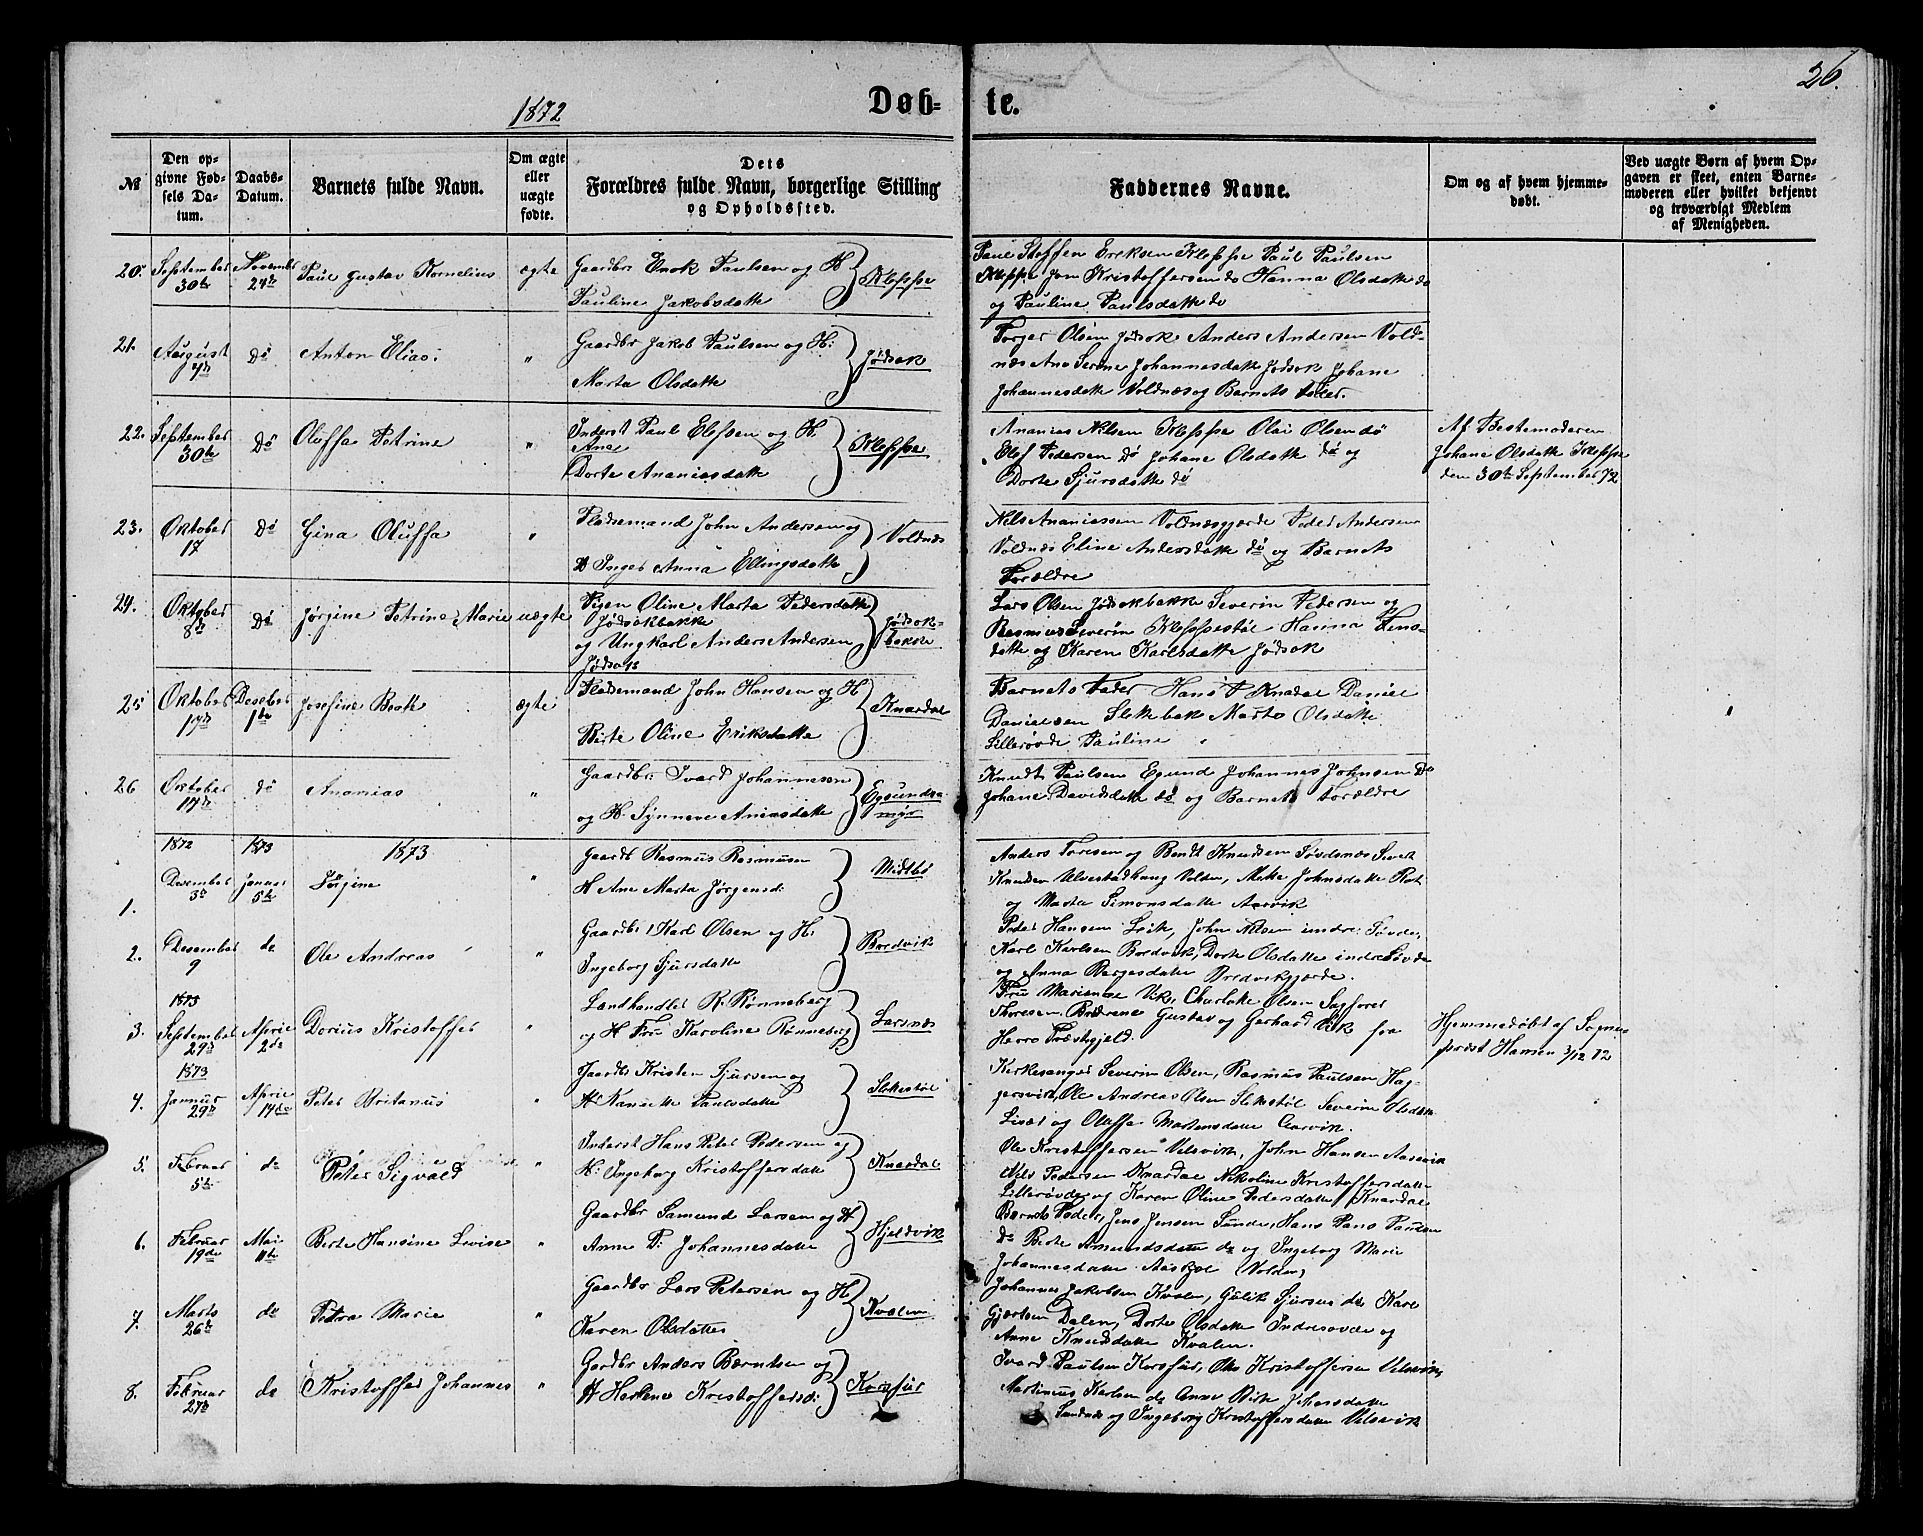 26.
1872
Døb-
te.
№
Den op-
givne Fød-
sels Da-
tum.
Daabs-
Datum.
Barnets fulde Navn.
Om ægte
eller
uægte
fødte.
Dets
Forældres fulde Navn, borgerlige Stilling
og Opholdssted.
Faddernes Navne.
Om og af hvem hjemme-
døbt.
Ved uægte Børn af hvem Op-
gaven er skeet, enten Barne-
moderen eller hvilket bekjendt
og troværdigt Medlem
af Menigheden.
20. September 30te November 24de Paul Gustav Kornelius ægte
Gaardbr Enok Paulsen og H
Pauline Jakobsdatte
Kleppe
Paul Steffen Eriksen Kleppe Paul Paulsen
Kleppe Jon Kristoffersen do Hanna Olsdatte do
og Pauline Paulsdatte do
21. August Do Anton Elias. "
Gaardbr Jakob Paulsen og H:
Marta Olsdatte
Jødsok
Torger Olsen Jødsok Anders Andersen Vold-
næs Ane Serine Johannesdatte Jødsok Johane
Johannesdatte Voldnæs og Barnets Fader.
22. September 30te Do Oluffa Petrine "
Inderst Paul Elefsen og H:
Ane
Dorte Ananiasdatte
Kleppe
Ananias Nilsen Kleppe Olai Olsen do
Elef Pedersen do Johane Olsdatte do og
Dorte Sjursdatte do
Af Bestemoderen
Johane Olsdatte Kleppe
den 30te September 72
23. Oktober 17 Do Gina Oluffa "
Pladsemand John Andersen og
H Inger Anna Ellingsdatte
Voldnæs
Nils Ananiassen Voldnæsgjerde Peder Andersen
Voldnæs Eline Andersdatte do og Barnets
Forældre
24. Oktober 8de Do Jørgine Petrine Marie uægte
Pigen Oline Marta Pedersdatte
Jødsokbakke
og Ungkarl Anders Andersen
Jødsok
Jødsok-
bakke
Lars Olsen Jødsokbakke Severin Pedersen og
Rasmus Severin Kleppestøl Hanna Jens-
datte og Karen Karlsdatte Jødsok
25 Oktober 17de Desebr 1ste Josefine Beate ægte
Pladsemand John Hansen og H
Berte Oline Eriksdatte
Knardal
Barnets Fader Hans Knadal Daniel
Danielsen Slettebak Marte Olsdatte
Lillesøvde Pauline
26 Oktober 17de do Ananias "
Gaardbr: Ivard Johannessen
og H. Synneve Aniasdatte
Egsunds-
myr
Knudt Paulsen Egsund Johannes Johnsen Do
Johane Davidsdatte do og Barnets Forældre
1872 1873 1873
1. Desember 3de Januar 5te Jørgine "
Gaardb Rasmus Rasmusen
H Ane Marta Jørgensd:
Midtbø
Anders Toresen og Bendt Knudsen Søvdsnæs Sevet
Knudsen Ulvestadhaug Volden, Mette Johnsdatte Rot
og Marte Simonsdatte Aarvik
2. Desember 9 do Ole Andreas "
Gaardbr Karl Olsen og H:
Ingeborg Sjursdatte
Bredvik
Peder Hansen Leik, John Nilsen indre Søvde,
Karl Karlsen Bredvik, Dorte Olsdatte indre Søvde
og Anna Bergesdatte Bredvikgjerde.
1873
3. September 29de April 2de Dorius Kristoffer "
Landhandler R. Rønneberg
og H Fru Karoline Rønneberg
Larsnæs
Fru Mariane Vik, Charlotte Olsen Sagfører
Thoresen, Brødrene Gustav og Gerhard Vik fra
Herrø Præstegjeld.
Hjemmedøbt af Sogne-
præst Hansen 3/12 72
1873
4. Januar 29de April 14de Peter Britanus "
Gaardbr Kristen Sjursen og
H Kanutte Paulsdatte
Slokestøl
Kirkesanger Severin Olsen, Rasmus Paulsen Hag-
gersvik, Ole Andreas Olsen Slokstøl Severine Olsdatte
Liset og Oluffa Martensdatte Aarvik.
5. Februar 5te do Peter Sigvald "
Inderst Hans Peter Pedersen og
H: Ingeborg Kristoffersdatte
Knardal
Ole Kristoffersen Velsvik, John Hansen Aarvik
Nils Pedersen Knardal Nikoline Kristoffersdatte
Lillesøvde og Karen Oline Pedersdatte Knardal
6. Februar 19de Mai 11te Berte Hansine Lovise "
Gaardbr Samund Larsen og H
Anne P: Johannesdatte
Hjeldvik
Barnets Fader, Jens Jensen Sunde, Hans Hans Paulsen
do Berte Amundsdatte do og Ingeborg Marie
Johannesdatte (Volden)
7. Marts 26de do Petra Marie "
Gaardbr Lars Petersen og H
Karen Olsdatter
Kvalen
Johannes Jakobsen Kvalen, Gulik Sjursen do Karl
Gjertsen Dalen, Dorte Olsdatte Indresøvde og
Anne Knudsdatte Kvalen.
8. Februar 27de do Kristoffer Johannes "
Gardbr Anders Berntsen og
H Helene Kristoffersd:
Korsfur
Ivard Paulsen Korsfur, Ole Kristoffersen Velsvik,
Martinus Karlsen do Anne Birte Johansdatte
Sandnæs og Ingeborg Kristoffersdatte Velsvik